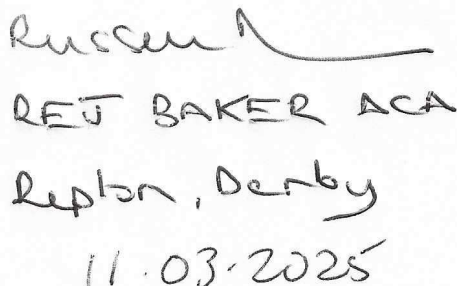 Russell
REJ BAKER ACA
Repton, Derby
11.03.2025